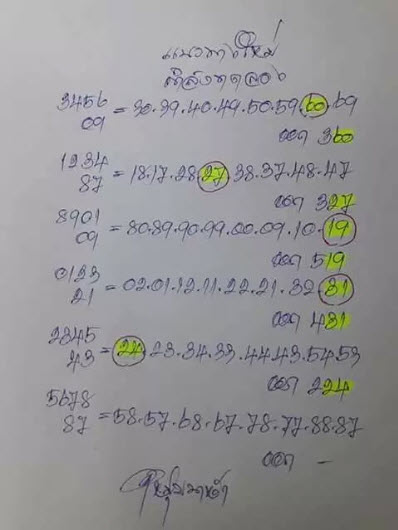 แนวทางใหม่
กำลังทดลอง
3456
09 = 30.39.40.49.50.59.60.69
ออก 360
1234
87 = 18.17.28.27.38.37.48.47
ออก 327
8901
09 = 80.89.90.99.00.09.10.19
ออก 519
0123
21 = 02.01.12.11.22.21.32.31
ออก 431
2345
43 = 24.23.34.33.44.43.54.53
ออก 224
5678
87 = 58.57.68.67.78.77.88.87
ออก -